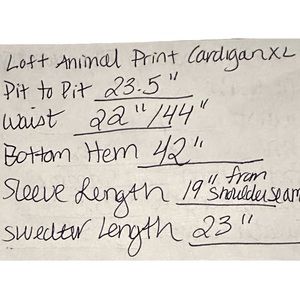 Loft Animal Print Cardigan XL
Pit to Pit 23.5"
Waist 22"/44"
Bottom Hem 42"
Sleeve Length 19" from shoulder seam
Sweater Length 23"